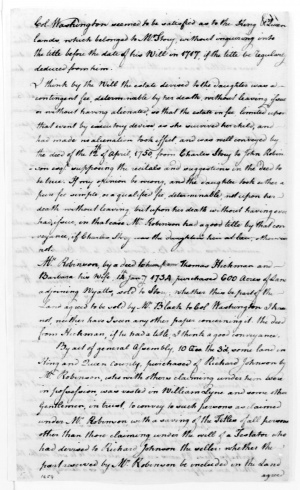 Col. Washington seemed to be satisfied as to the King & Queen
lands which belonged to Mr Story, without inquiring into
the title before the date of his Will in 1717, if the title be regularly
deduced from him.
I think by the Will the estate devised to the daughter was a
contingent fee, determinable by her death without leaving issue
or without having alienated, so that the estate in fee limited upon
that event by executory devise as she survived her child, and
had made no alienation took effect and was well conveyed by
the deed of the 12th of April, 1750, from Charles Story to John Robin
son esqr. supposing the recitals and suggestions in the deed to
be true. If my opinion be wrong, and the daughter took either a
fee simple or a qualified fee, determinable, not upon her
death without leaving but upon her death without having ever
had, issue, in that case Mr. Robinson had a good title by that con
veyance, if Charles Story was the heir at law, otherwise
not.
Mr. Robinson by a deed from Thomas Hickman and
Barbara his Wife 1734, purchased 600 Acres of Land
adjoining Wyatts, sold to Story, whether this be part of the
land agreed to be sold by Mr. Black to Col Washington I know
not, neither have I seen any other paper concerning it. The deed
from Hickman, if he had a title, I think a good conveyance.
By act of general Assembly, 10 Geo. the 3d, some land in
King and Queen County, purchased of Richard Johnson by
Mr. Robinson, who with others claiming under him were
in possession, was vested in William Lyne and some other
Gentlemen, in trust, to convey to such persons as claimed
under Mr. Robinson with a saving of the Titles of all persons
other than those claiming under the will of a Testator who
had devised to Richard Johnson the seller. whether the
part reserved by Mr. Robinson be included in the Land
agreed